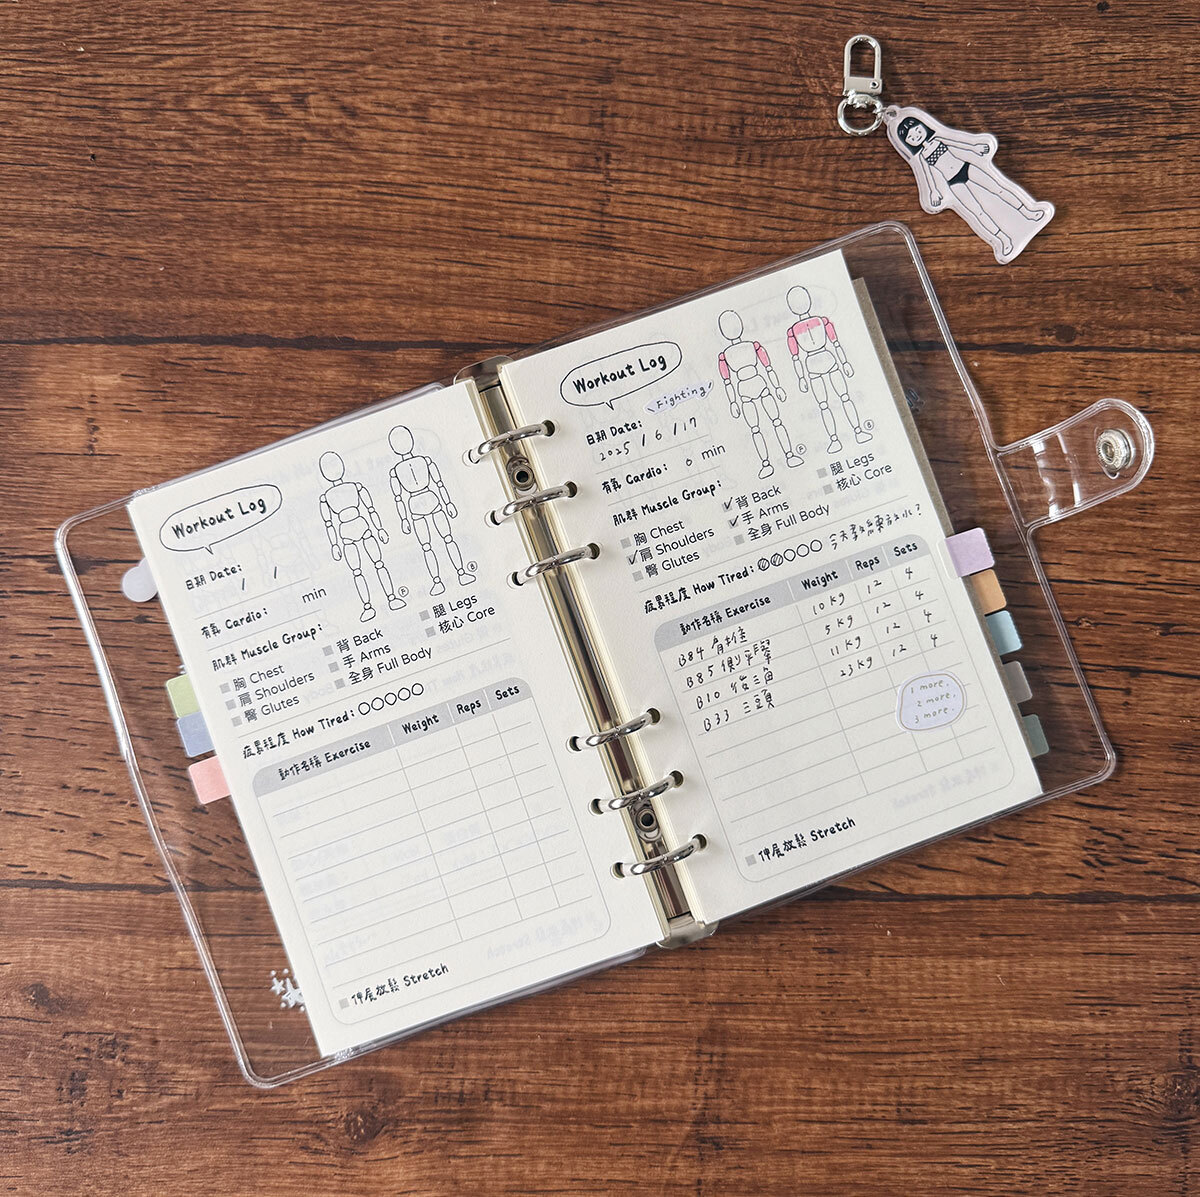 Workout Log
日期 Date:
/ /
有氧 Cardio: min
肌群 Muscle Group:
胸 Chest 背 Back 腿 Legs
肩 Shoulders 手 Arms 核心 Core
臀 Glutes 全身 Full Body
疲累程度 How Tired:
動作名稱 Exercise Weight Reps Sets
伸展放鬆 Stretch
F
B
Workout Log
Fighting!
日期 Date:
2025 / 6 / 17
有氧 Cardio: 0 min
肌群 Muscle Group:
胸 Chest ✓背 Back 腿 Legs
✓肩 Shoulders ✓手 Arms 核心 Core
臀 Glutes 全身 Full Body
疲累程度 How Tired: 今天教練放水?
動作名稱 Exercise Weight Reps Sets
B84 肩推 10 kg 12 4
B85 側平舉 5 kg 12 4
B10 後三角 11 kg 12 4
B33 三頭 23 kg 12 4
1 more,
2 more,
3 more.
伸展放鬆 Stretch
F
B